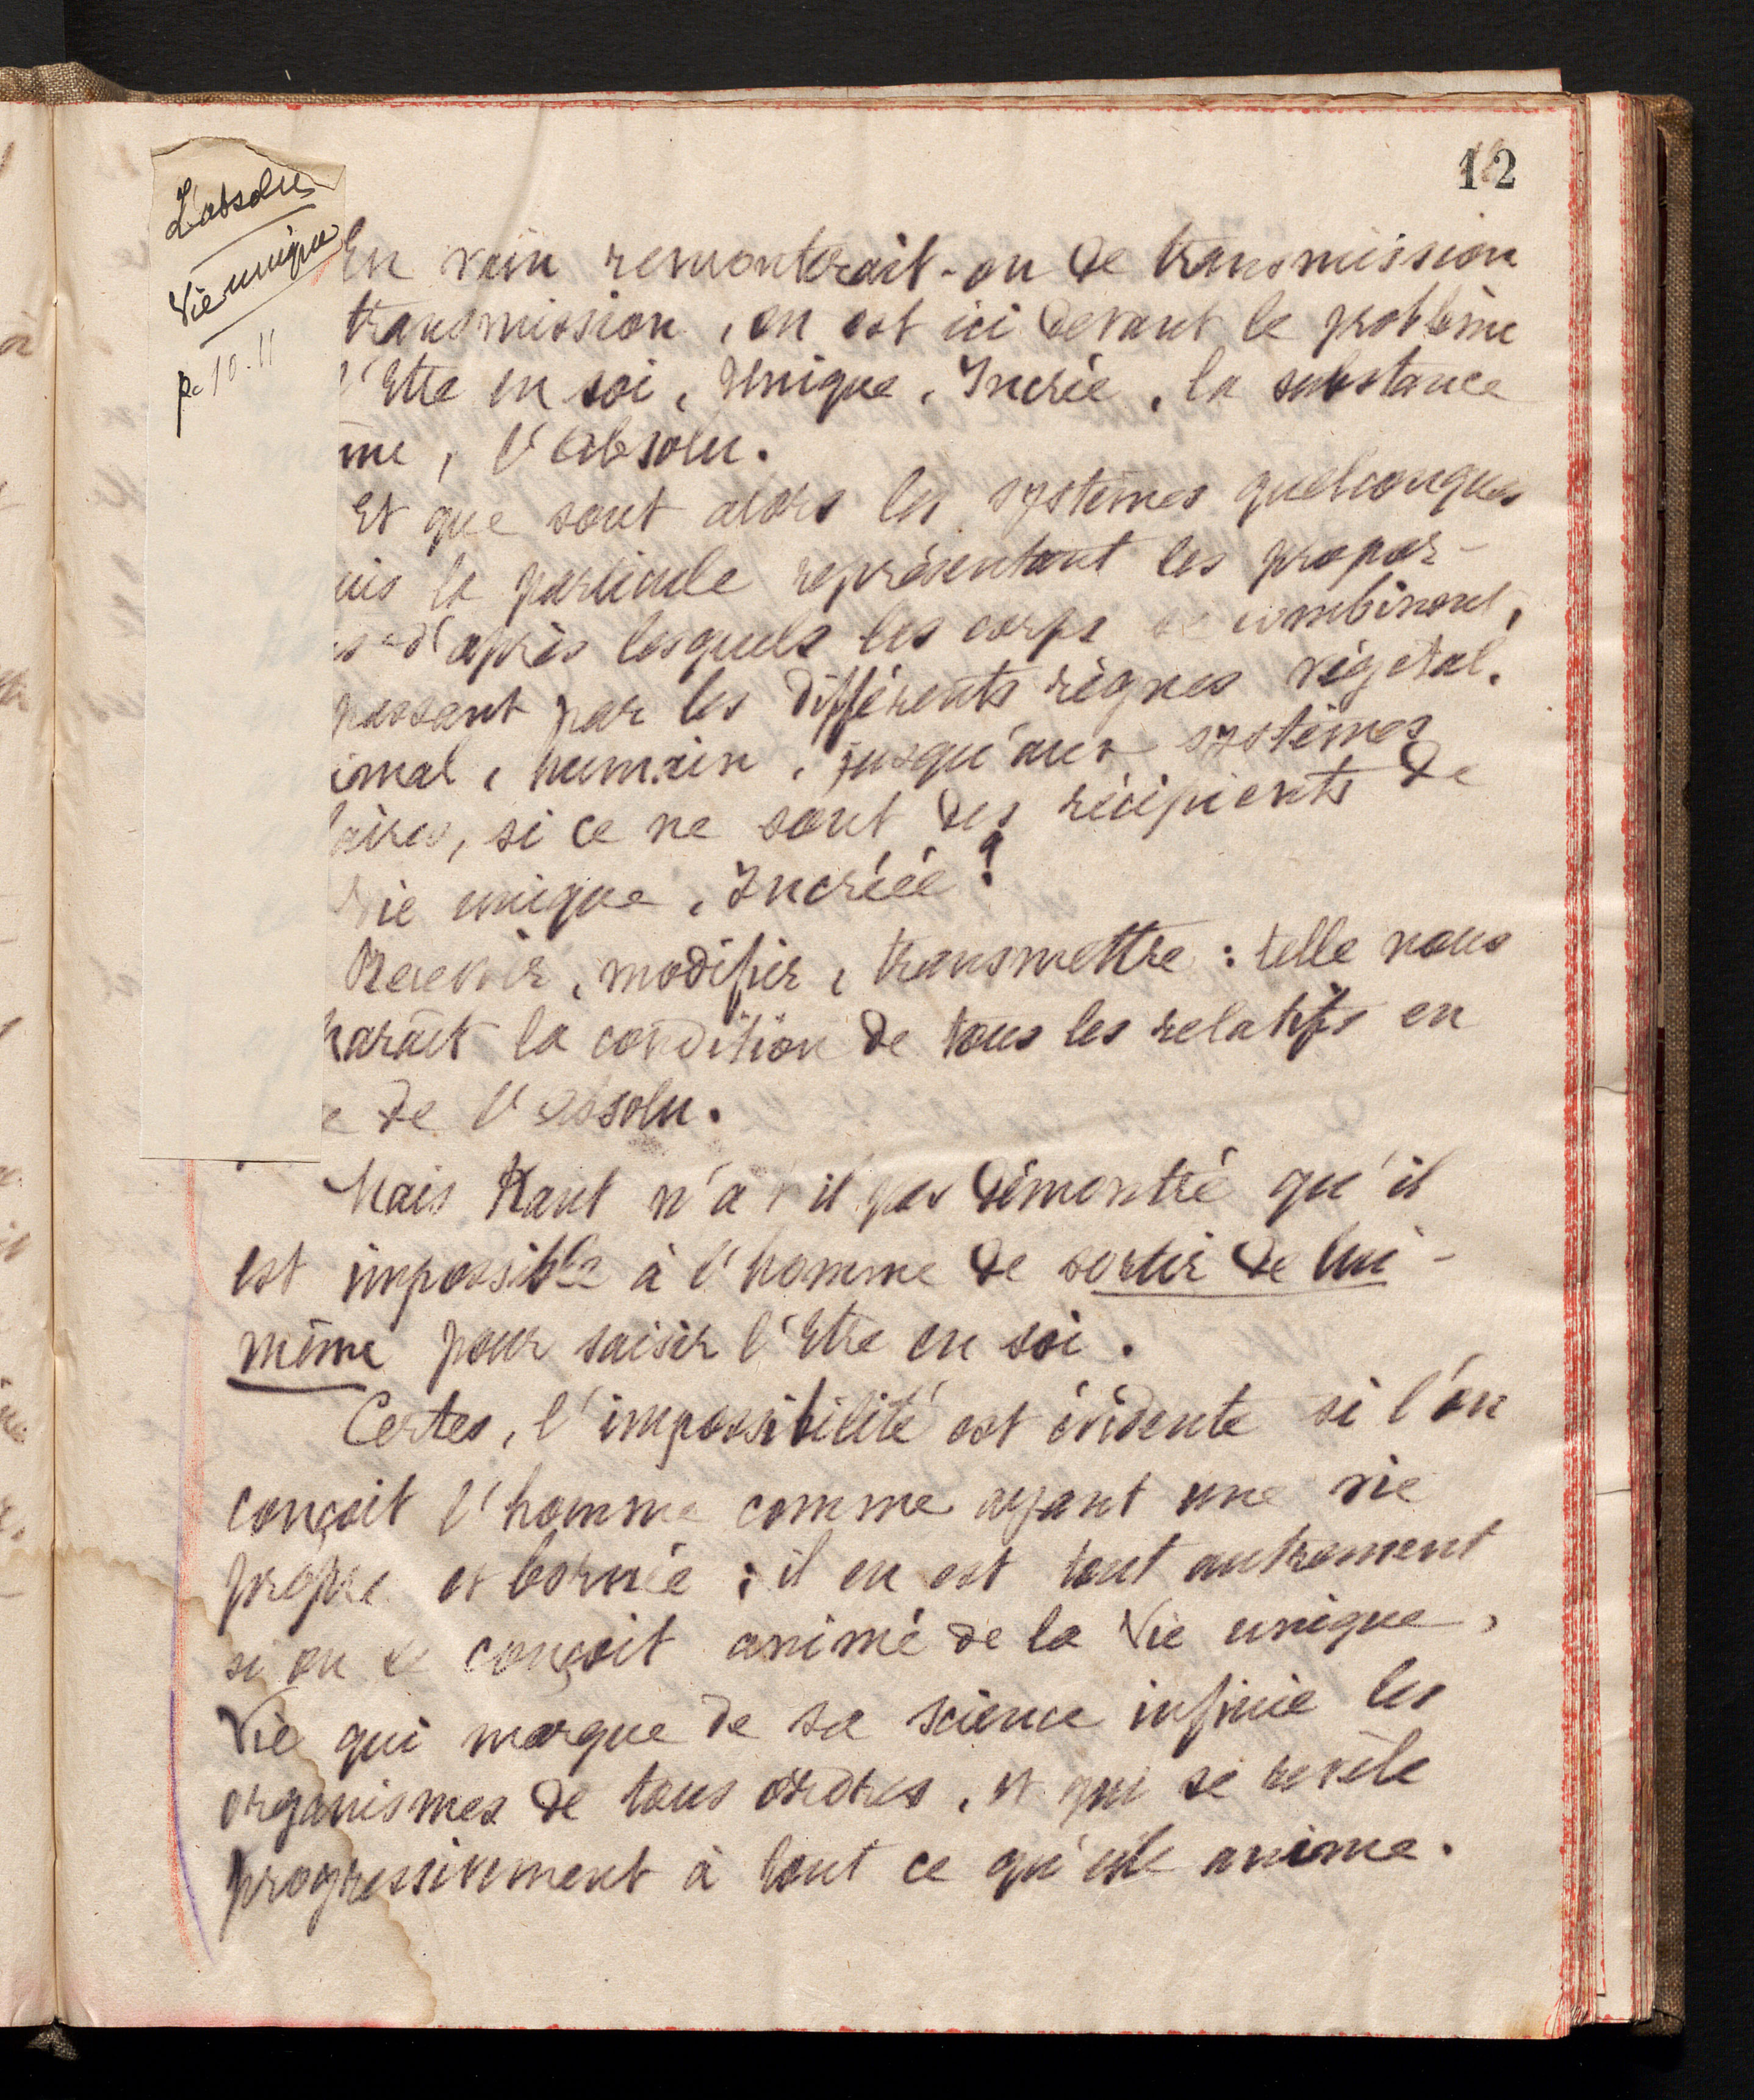 12
L'absolu
Vie unique
p. 10.11
En vain remonterait-on de transmission
transmission, on est ici devant le problème
l'Etre en soi, Unique, Incréé, la substance
me, l'Absolu.
Et que sont alors les systèmes quelconques
uis la particule représentant les propor-
s d'après lesquels les corps se combinent,
passant par les différents règnes végétal,
imal, humain, jusqu'aux systèmes
laires, si ce ne sont des récipients de
Vie unique, Incréée?
Recevoir, modifier, transmettre: telle nous
paraît la condition de tous les relatifs en
e de l'absolu.
Mais Kant n'a t il pas démontré qu'il
est impossible à l'homme de sortir de lui-
même pour saisir l'Etre en soi.
Certes, l'impossibilité est évidente si l'on
conçoit l'homme comme ayant une vie
propre et bornée; il en est tout autrement
si on le conçoit animé de la Vie unique,
Vie qui marque de sa science infinie les
organismes de tous ordres, et qui se révèle
progressivement à tout ce qu'elle anime.